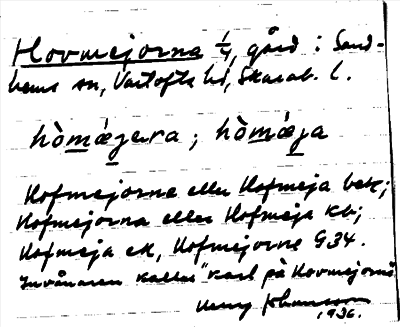 Hovmejorna 1/4, gård i Sand-
hems sn, Vartofta hd, Skarab. l.
hòmǽjera; hòmǽja
Hofmejorne eller Hofmeja bek;
Hofmejorna eller Hofmeja kb;
Hofmeja ek, Hofmejorne G34.
Invånaren kallas "Karl på Hovmejorna
Henry Johansson
1936.